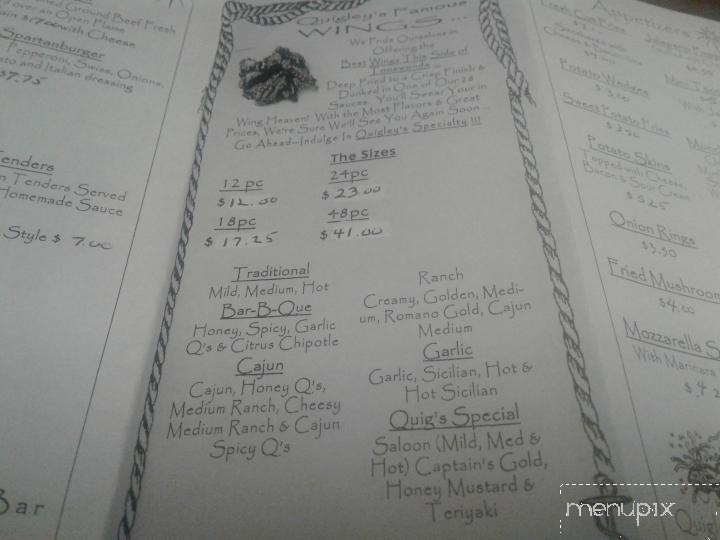 Ground Beef Fresh
over an Open Flame
with Cheese
Spartanburger
Pepperoni, Swiss, Onions,
and Italian dressing
$7.75
Tenders Served
Homemade Sauce
Style $ 7.00
Bar
Quigley's Famous
WINGS...
We Pride Ourselves in
Offering the
Best Wings This Side of
Tonawanda ...
Deep Fried to a Crisp Finish &
Dunked in One of Our 28
Sauces. You'll Swear Your in
Wing Heaven! With the Most Flavors & Great
Prices, We're Sure We'll See You Again Soon ...
Go Ahead--Indulge In Quigley's Specialty !!!
The Sizes
12 pc
$12.00
18pc
$ 17.25
24pc
$ 23.00
48pc
$ 41.00
Traditional
Mild, Medium, Hot
Bar-B-Que
Honey, Spicy, Garlic
Q's & Citrus Chipotle
Cajun
Cajun, Honey Q's,
Medium Ranch, Cheesy
Medium Ranch & Cajun
Spicy Q's
Ranch
Creamy, Golden, Medi-
um, Romano Gold, Cajun
Medium
Garlic
Garlic, Sicilian, Hot &
Hot Sicilian
Quig's Special
Saloon (Mild, Med &
Hot) Captain's Gold,
Honey Mustard &
Teriyaki
Appetizers
Potato Wedges
$3.00
Sweet Potato Fries
Potato Skins
Topped with Cheese,
Bacon & Sour Cream
Onion Rings
$3.50
Fried Mushroom
$4.00
Mozzarella S
With Marinara
menupix